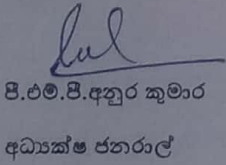 පී.එම්.පී.අනුර කුමාර
අධ්‍යක්ෂ ජනරාල්